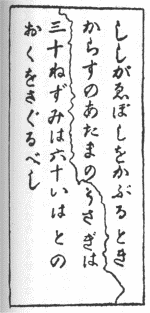 ししがゑぼしをかぶるとき
からすのあたまのうさぎは
三十ねずみは六十いはとの
おくをさぐるべし